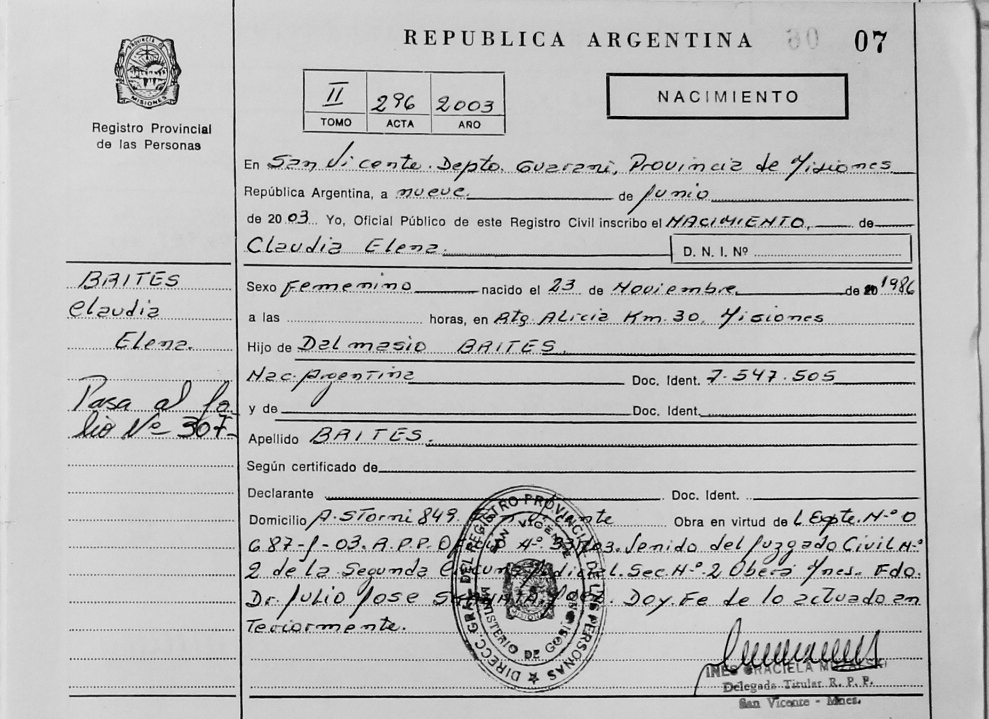 REPUBLICA ARGENTINA 07
PROVINCIA DE
MISIONES
Registro Provincial
de las Personas
II 296 2003
TOMO ACTA AÑO
NACIMIENTO
En San Vicente. Depto. Guarani, Provincia de Misiones
República Argentina, a nueve de Junio
de 2003 Yo, Oficial Público de este Registro Civil inscribo el NACIMIENTO, de
Claudia Elena.
D. N. I. Nº
BRITES
Claudia
Elena.
Pasa al fo-
lio Nº 307-
Sexo Femenino nacido el 23 de Noviembre de 1986
a las horas, en Btg Alicia Km. 30. Misiones
Hijo de Dalmasio BRITES.
Nac. Argentina Doc. Ident. 7.547.505
y de Doc. Ident.
Apellido BRITES.
Según certificado de
Declarante Doc. Ident.
Domicilio A. Storni 849. Obra en virtud del Expte. N.º 0
687-J-03. A.P.P. venido del Juzgado Civil N.º
2 de la Segunda Sec. N.º 2 Oberá Mnes. Fdo.
Dr. Julio Jose Doy Fe de lo actuado an
teriormente.
DIRECC. GRAL DEL REGISTRO PROVINCIAL DE LAS PERSONAS
SAN VICENTE
MINISTERIO DE GOBIERNO
INES GRACIELA
Delegada Titular R. P. P.
San Vicente - Mnes.